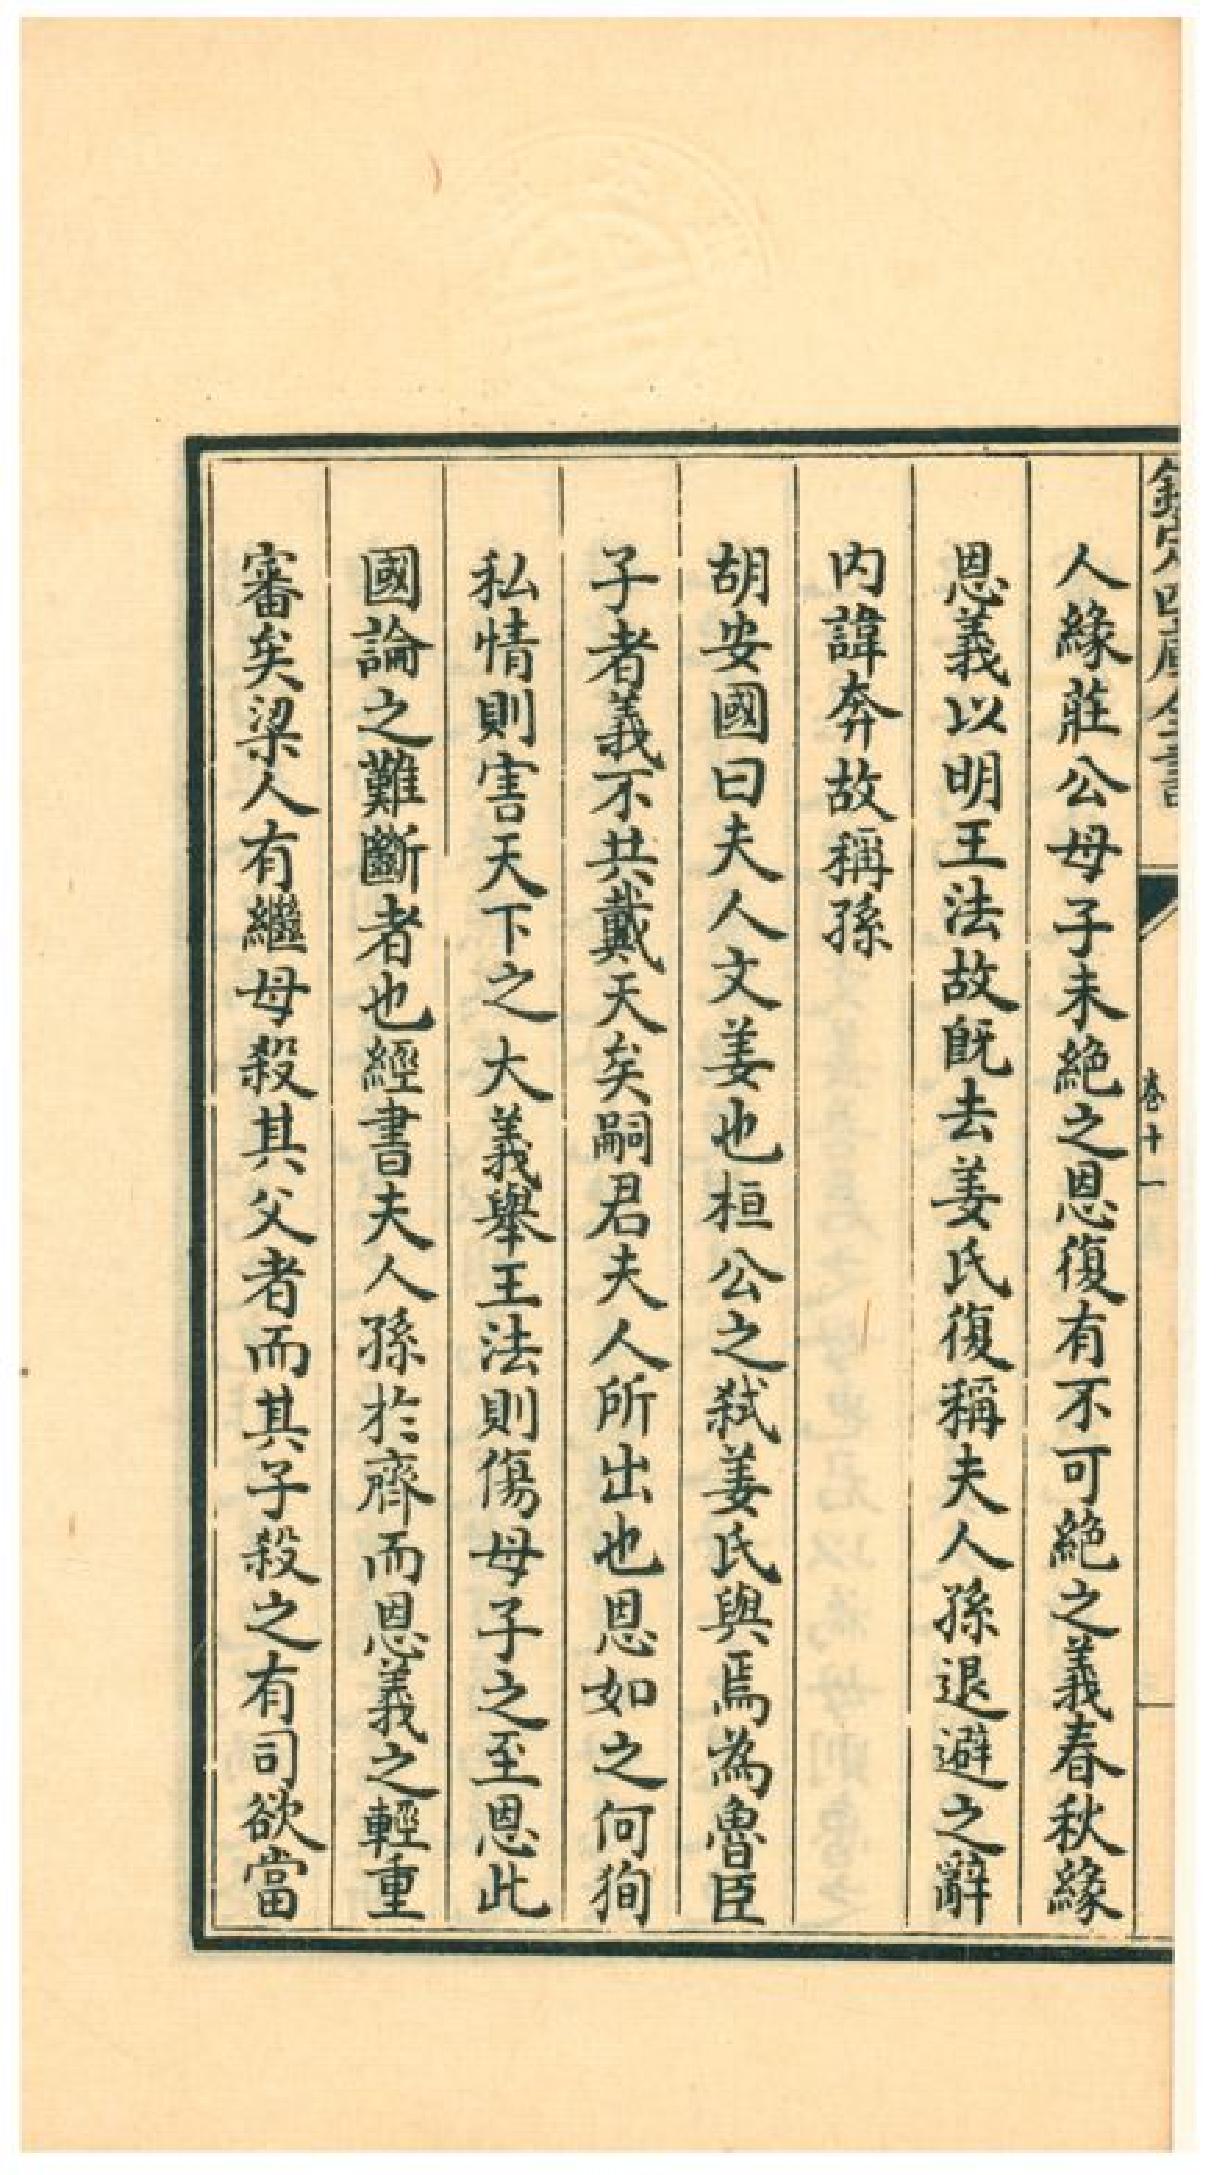 欽定四庫全書
卷十一
人緣莊公母子未絕之恩復有不可絕之義春秋緣
恩義以明王法故旣去姜氏復稱夫人孫退避之辭
内諱奔故稱孫
胡安國曰夫人文姜也桓公之弑姜氏與焉為魯臣
子者義不共戴天矣嗣君夫人所出也恩如之何狥
私情則害天下之大義舉王法則傷母子之至恩此
國論之難斷者也經書夫人孫於齊而恩義之輕重
審矣梁人有繼母殺其父者而其子殺之有司欲當